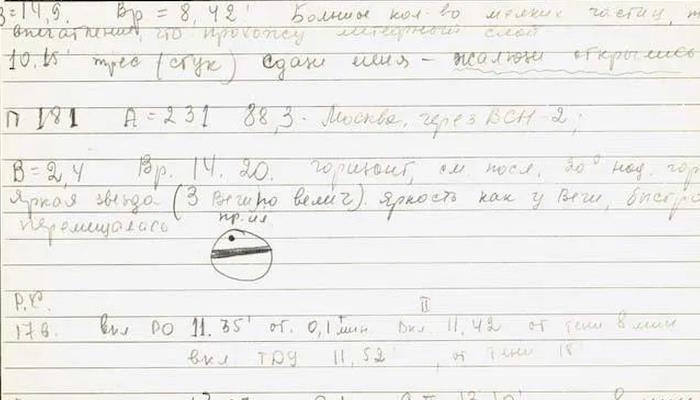 В=14,9. Вр = 8, 42' Большое кол-во мелких частиц,
впечатление, что прохожу метеорный слой
10.15' треск (стук) сзади меня - жалюзи открылись
П 181 А = 231 88,3. Москва, через ВСН-2;
В = 2,4 Вр. 14. 20. горизонт, см. посл. 20° над. гор
Яркая звезда (3 Веги по велич). Яркость как у Веги, быстро
перемещалась
пр. ил
Р.С.
II
17 в. вкл РО 11.35' от. 0,1 мин. Вкл. 11,42 от тени 8 мин
вкл ТДУ 11,52' , от тени 18'